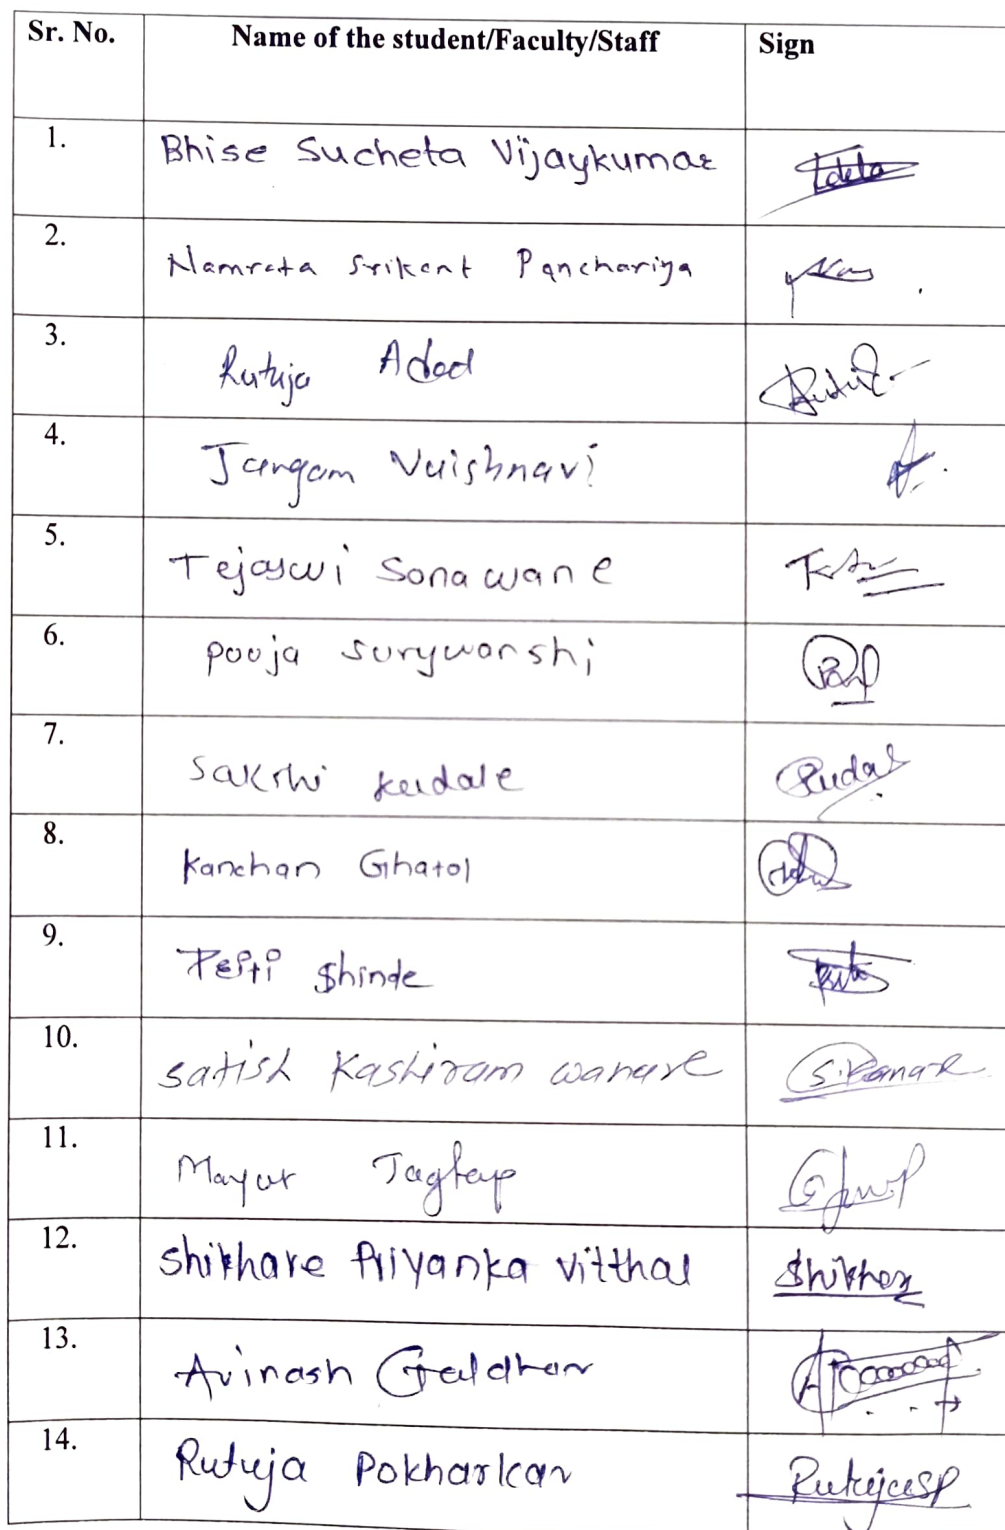 Sr. No. Name of the student/Faculty/Staff Sign
1. Bhise Sucheta Vijaykumar
2. Namrata Srikant Panchariya
3. Rutuja Adod
4. Jangam Vaishnavi
5. Tejaswi Sonawane
6. pooja surywanshi
7. Sakshi
8. Kanchan Ghatol
9. Shinde
10. Satish Kashiram wanare
11. Mayur Jagtap
12. Shikhare Priyanka vitthal Shikhare
13. Avinash
14. Rutuja Pokharkar RutujaSP